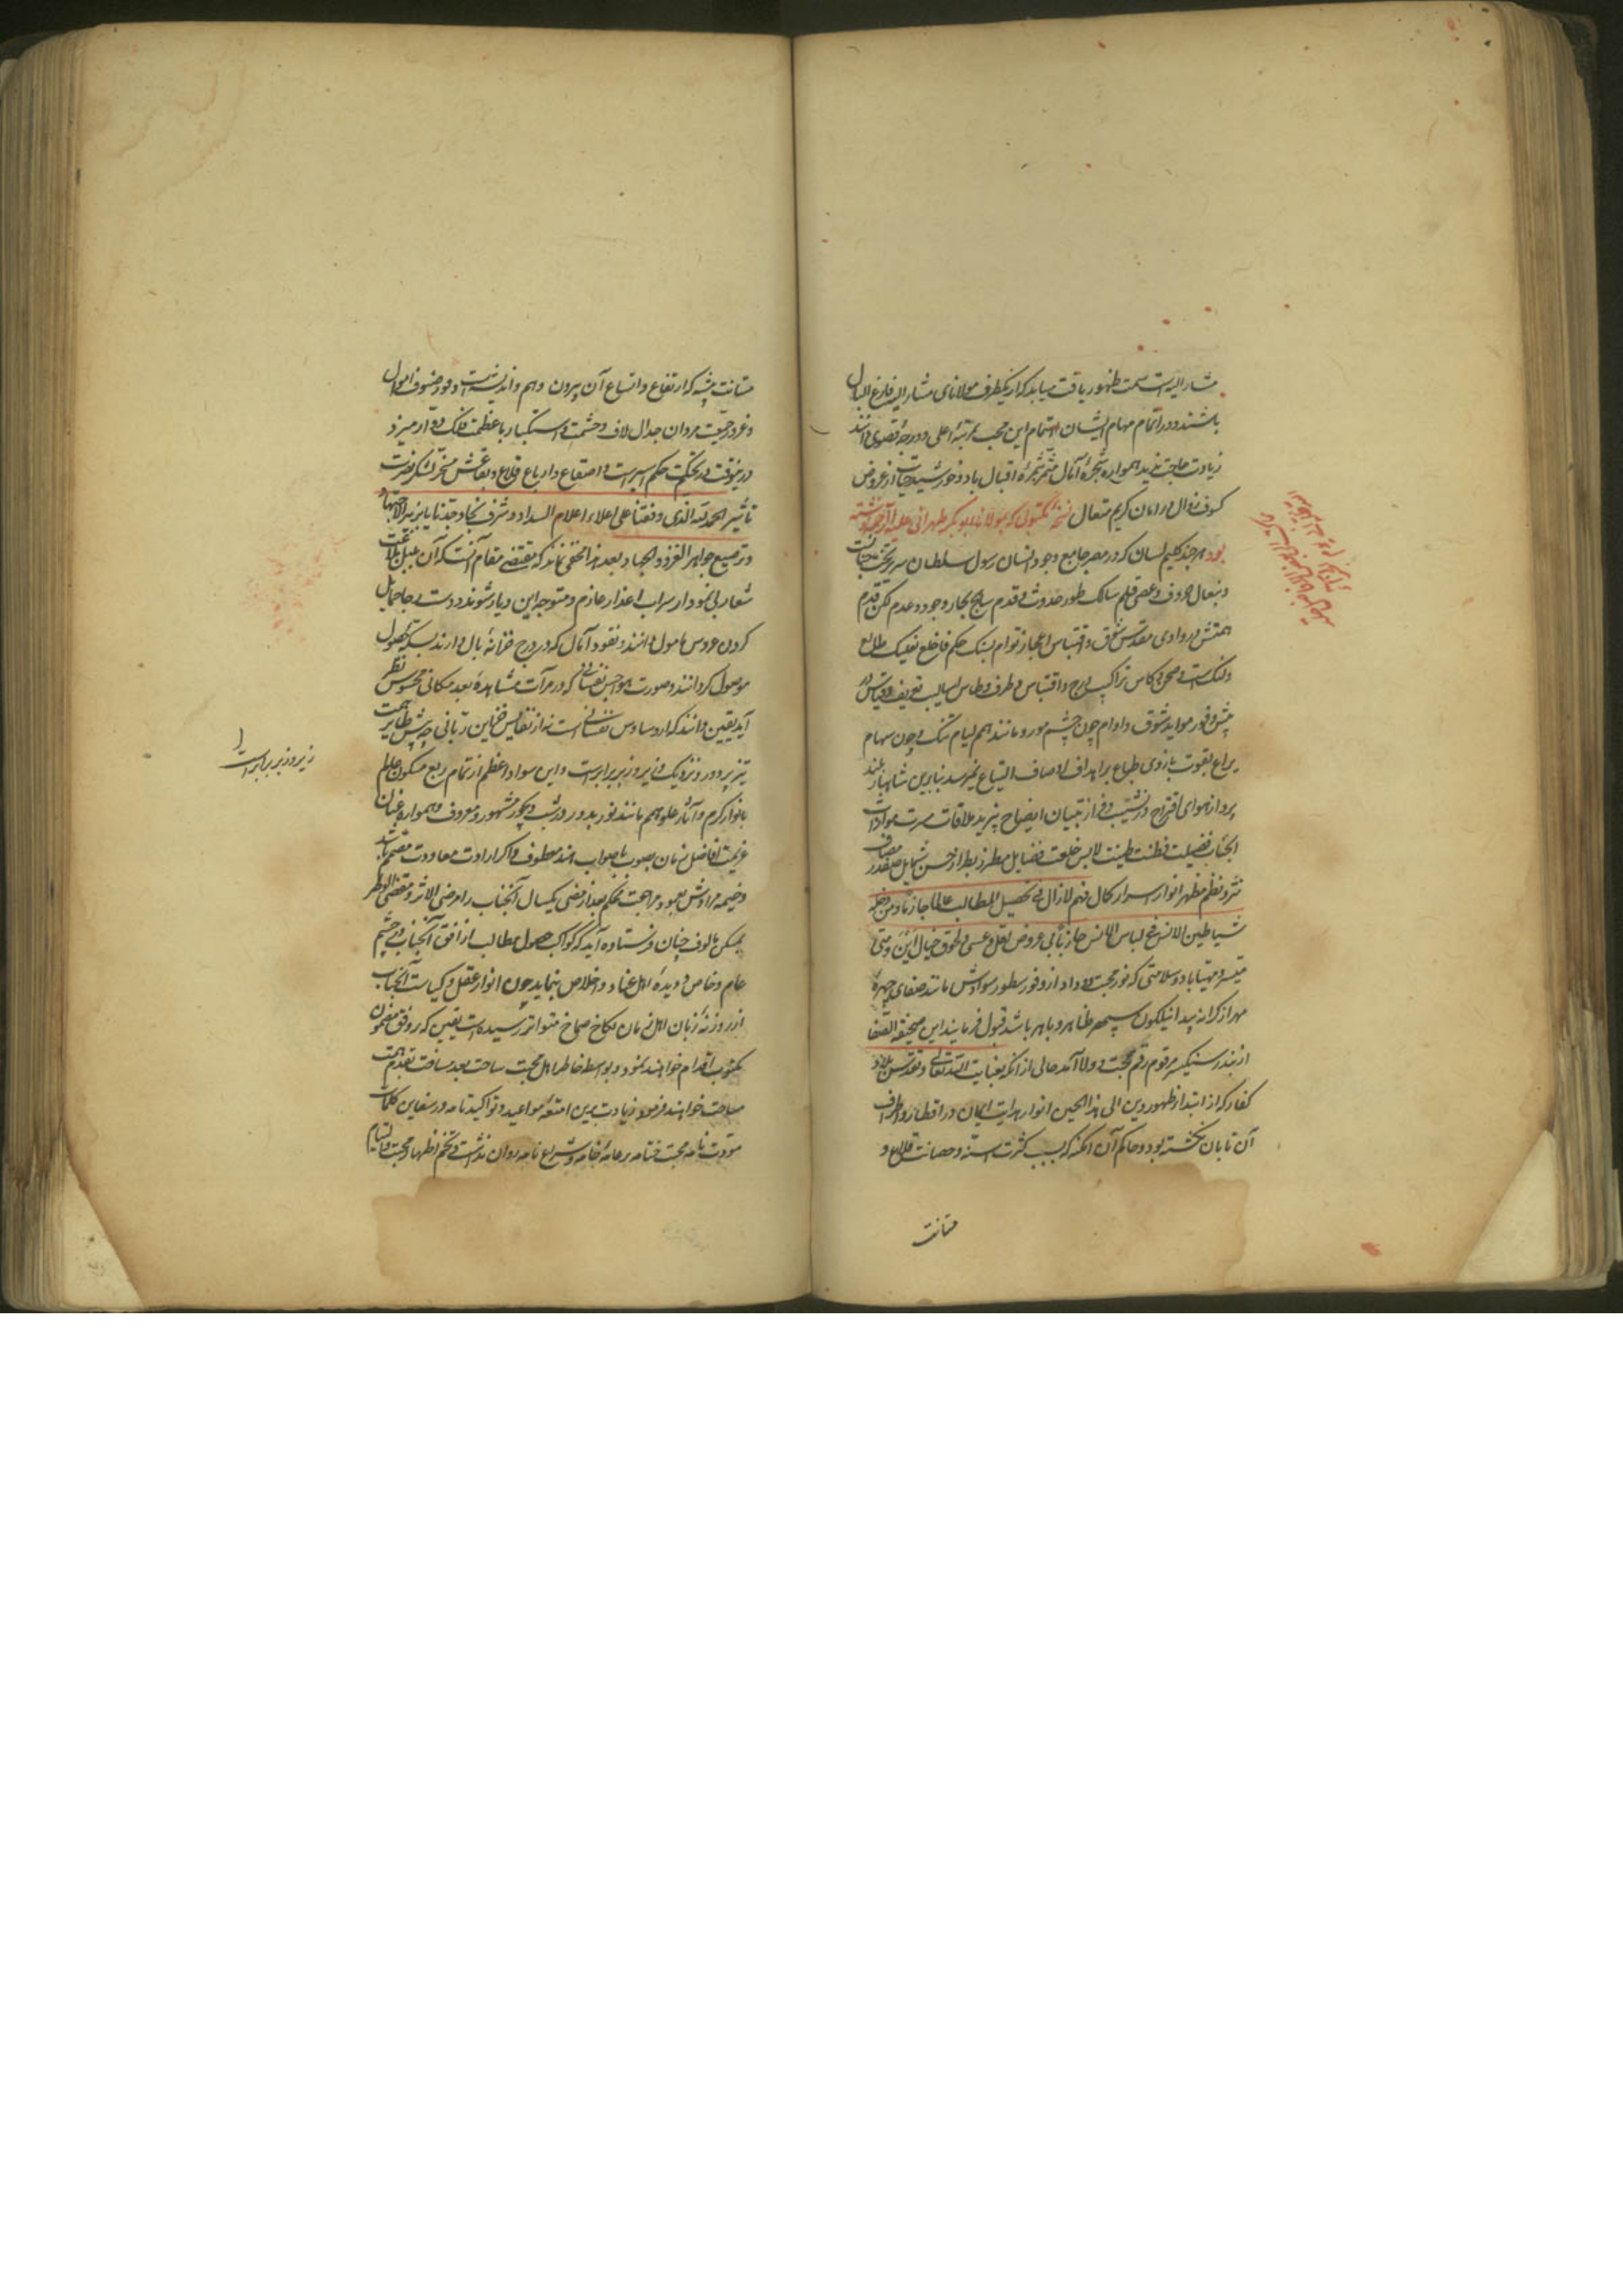 مشار الیه است سمت ظهور یافت میباید که از یکطرف مولانای مشار الیه فارغ البال
باشند و در اتمام مهام ایشان اهتمام این محب بمرتبهٔ اعلی و درجهٔ قصوی دانند
زیادت حاجت ندید همواره شجرهٔ آمال مثمر ثمرهٔ اقبال باد و خورشید حیات از عروض
کسوف زوال در امان کریم متعال نسخهٔ مکتوبی که بمولانا ابوبکر طهرانی علیه الرحمه نوشته
بود هر چند کلیم لسان که در مصر جامع وجود انسان رسول سلطان سریر تخت
و بنعال حروف و عصی قلم سالک طور حدوث و قدم سابح بحار وجود و عدم
همتش در وادی مقدس شوق و اقتباس اعجاز توام بسنگ حکم فاخلع نعلیک
ولنگ است و صحن کاس تراکیب و اقتباس و ظرف وطاس اسالیب تعریف و قیاس در
پیش وفور مواید شوق و اوام چون چشم مور و مانند هم لیام تنگ و چون سهام
یراع بقوت بازوی طباع بر اهداف اوصاف التیاع نمیرسد بنابرین شاهباز بلند
پرواز هوای اقتراح در نشیب و فراز تبیان ایضاح نپرید ملاقات مسرت
انجناب فضیلت فطنت طینت لابس خلعت فضایل مطرز بطراز حسن شمایل صفدر مصاف
نثر و نظم مظهر انوار اسرار کمال فهم لا زال فی تحصیل المطالب عالما جازما و من
شیاطین الانس فی لباس الناس حازما بی عروض لعل و عسی و لحوق خیال این و متی
میسر و مهیا باد و سلامتی که نور محبت و داد از وفور سطور سوادش مانند صفای چهرهٔ
مهر از کرانهٔ پیدا نیلگون سپهر ظاهر و باهر باشد قبول فرمایند این صحیفة الصفا
از بندر سنگیسر مرقوم رقم محبت و ولا آمد حالی از آنکه بعنایت الله تعالی و تقدس بلاد
کفار که از ابتداء ظهور دین الی هذا الحین انوار هدایت ایمان در اقطار و اطراف
آن تابان نگشته بود و حاکم آن امکنه که بسبب کثرت السنه و حصانت قلاع و
متانت
متانت بیشه که ارتفاع و اتساع آن بیرون وهم و اندیشه است و وفور صنوف اموال
و غرور جمعیت مردان جدال لاف حشمت و استکبار با عظمت فلک دوار میزد
درینوقت در تحکیم حکم اسیر است و اصقاع و ارباع قلاع و بقاعش مسخر لشکر نصرت
تاثیر الحمد لله الذی وفقنا علی اعلاء اعلام السداد و شرف بنجاد وجدنا بازیز الاجتهاد
و ترصیع جواهر الغزو و الجهاد بعد هذا مخفی نماند که مقتضی مقام آنست که آن بلبل بلاغت
شعار بی نمودار سراب اعذار عازم و متوجه این دیار شوند و دست رجا حمایل
گردن عروس مامول دانند و نقود آمال که در درج خزانهٔ بال دارند بسکهٔ حصول
موصول گردانند و صورت هواجس نفسانی که در مرآت مشاهدهٔ بعد مکانی محسوس نظر
آید یقین دانند که از وساوس نفسانی است نه از نفایس خزاین ربانی چه پیش طایر همت
تیزپر دور و نزدیک و زیر و زبر برابرست و این سواد اعظم از تمام ربع مسکون عالم
بانوار کرم و آثار علو همم مانند نور بدور در شب دیجور مشهور و معروف و همواره عنان
عزیمت افاضل زمان بصوب باصواب هند معطوف و اگر ارادت معاودت مصمم باشد
و ضمیمه مرادش بعود مراجعت محکم بعد از مضی یکسال آنجناب را مرضی الاثر و مقضی الوطر
بمسکن مالوف چنان فرستاده آید که کواکب حصول مطالب از افق آنجناب در چشم
عام و خاص و دیدهٔ اهل عناد و اخلاص بنماید چون انوار عقل و کیاست آنجناب
از روزنهٔ زبان اهل زمان بکاخ صماخ متواتر رسیده است یقین که بر وفق مضمون
مکتوب اقدام خواهند نمود و بواسطه خاطر اهل محبت ساحت بعد مسافت بقدم همت
مساحت خواهند فرمود زیادت برین امتعهٔ مواعید و تواکید نامه در سفاین کلمات
مودت نامه محبت ختامه بر عامهٔ خامه و شراع نامه روان نداشت و ختم اظهار محبت و السلام
زیر و زبر برابر است